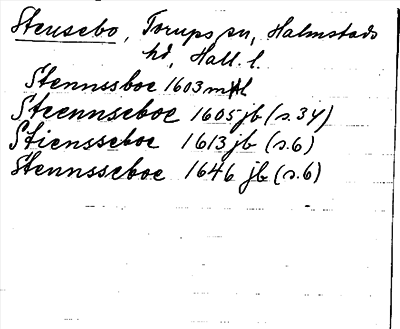 Stensebo, Torups sn, Halmstads
hd, Hall. l.
Stennssboe 1603 mtl
Steennseboe 1605 jb (s.34)
Stiensseboe 1613 jb (s.6)
Stennsseboe 1646 jb (s.6)